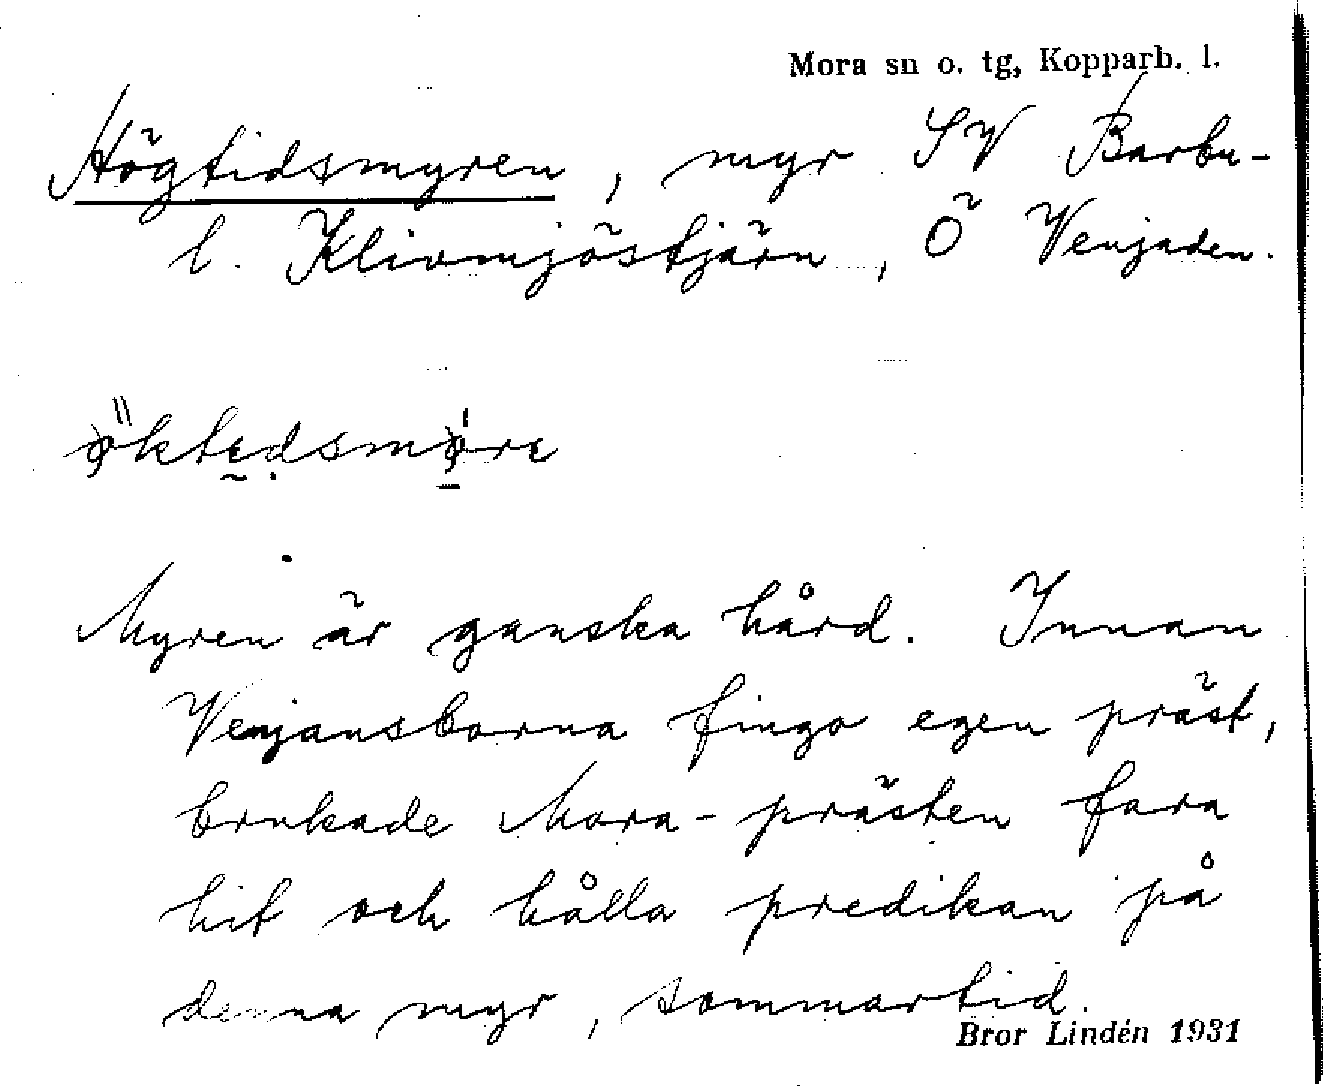 Mora sn o. tg, Kopparb. l.
Högtidsmyren, myr SV Barbu-
l. Klivmjöstjärn, Ö Venjaden.
Myren är ganska hård. Innan
Venjansborna fingo egen präst,
brukade Mora-prästen fara
hit och hålla predikan på
denna myr, sommartid.
Bror Lindén 1931